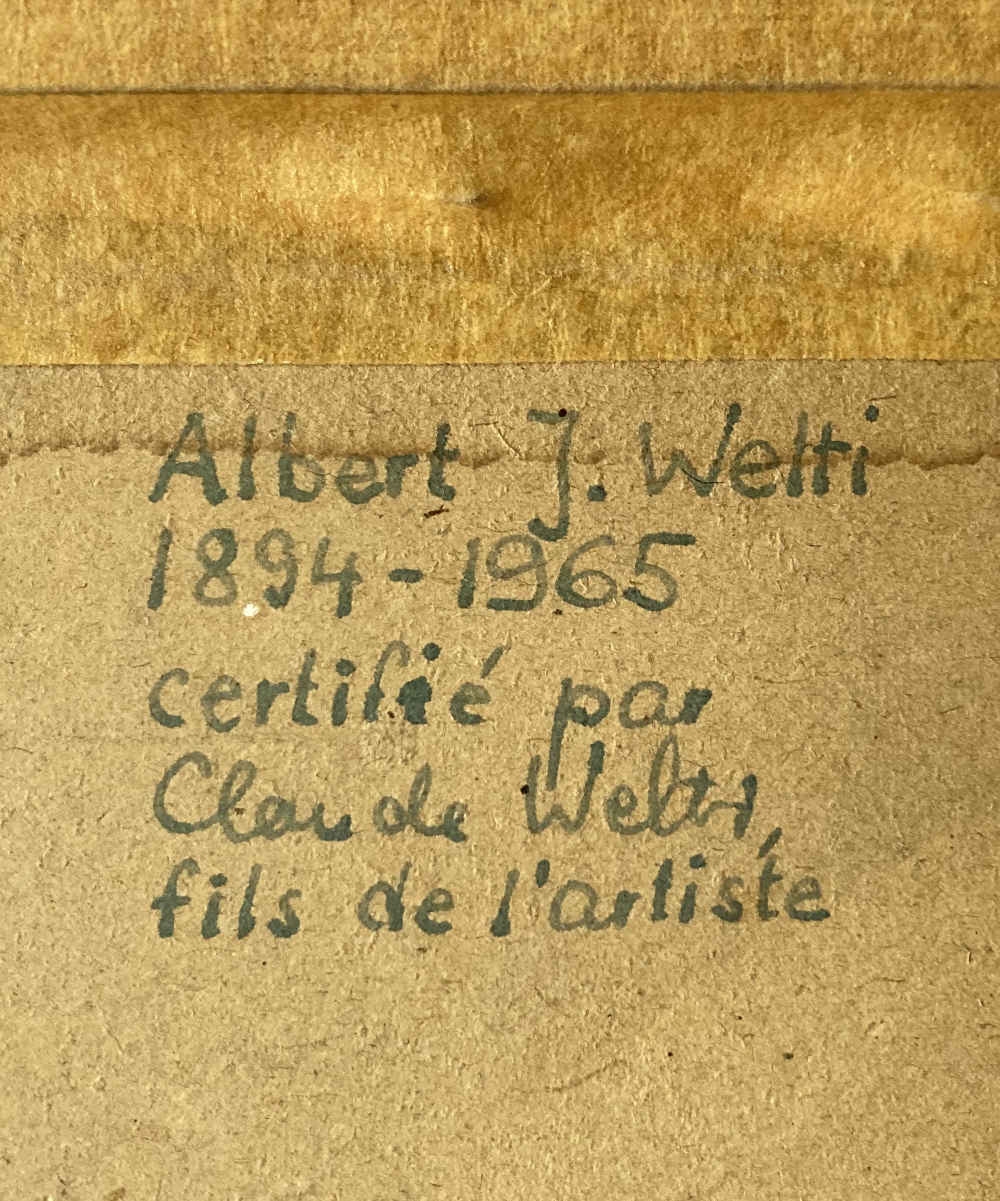 Albert J. Welti
1894-1965
certifié par
Claude Welti,
fils de l'artiste